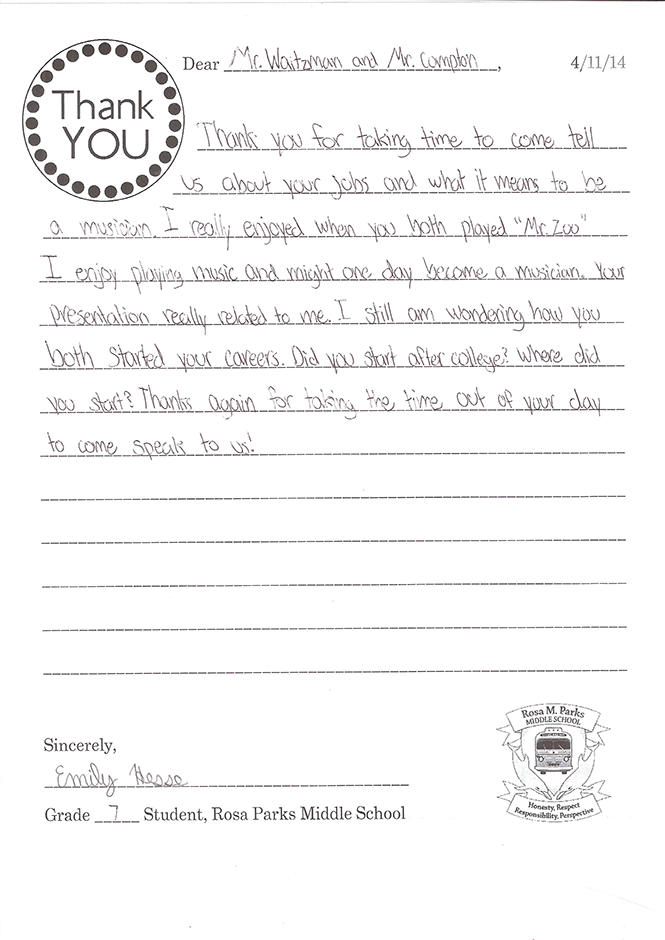 Thank
YOU
Dear Mr. Waitzman and Mr. Compton, 4/11/14
Thank you for taking time to come tell
us about your jobs and what it means to be
a musician. I really enjoyed when you both played "Mr. Zoo"
I enjoy playing music and might one day become a musician. Your
presentation really related to me. I still am wondering how you
both started your careers. Did you start after college? Where did
you start? Thanks again for taking the time out of your day
to come speak to us!
Sincerely,
Emily Hesse
Grade 7 Student, Rosa Parks Middle School
Rosa M. Parks
MIDDLE SCHOOL
Honesty, Respect
Responsibility, Perspective